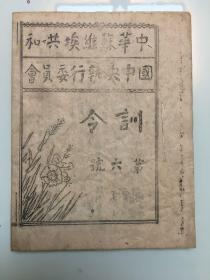 中華蘇維埃共和
國中央執行委員會
訓令
第六號